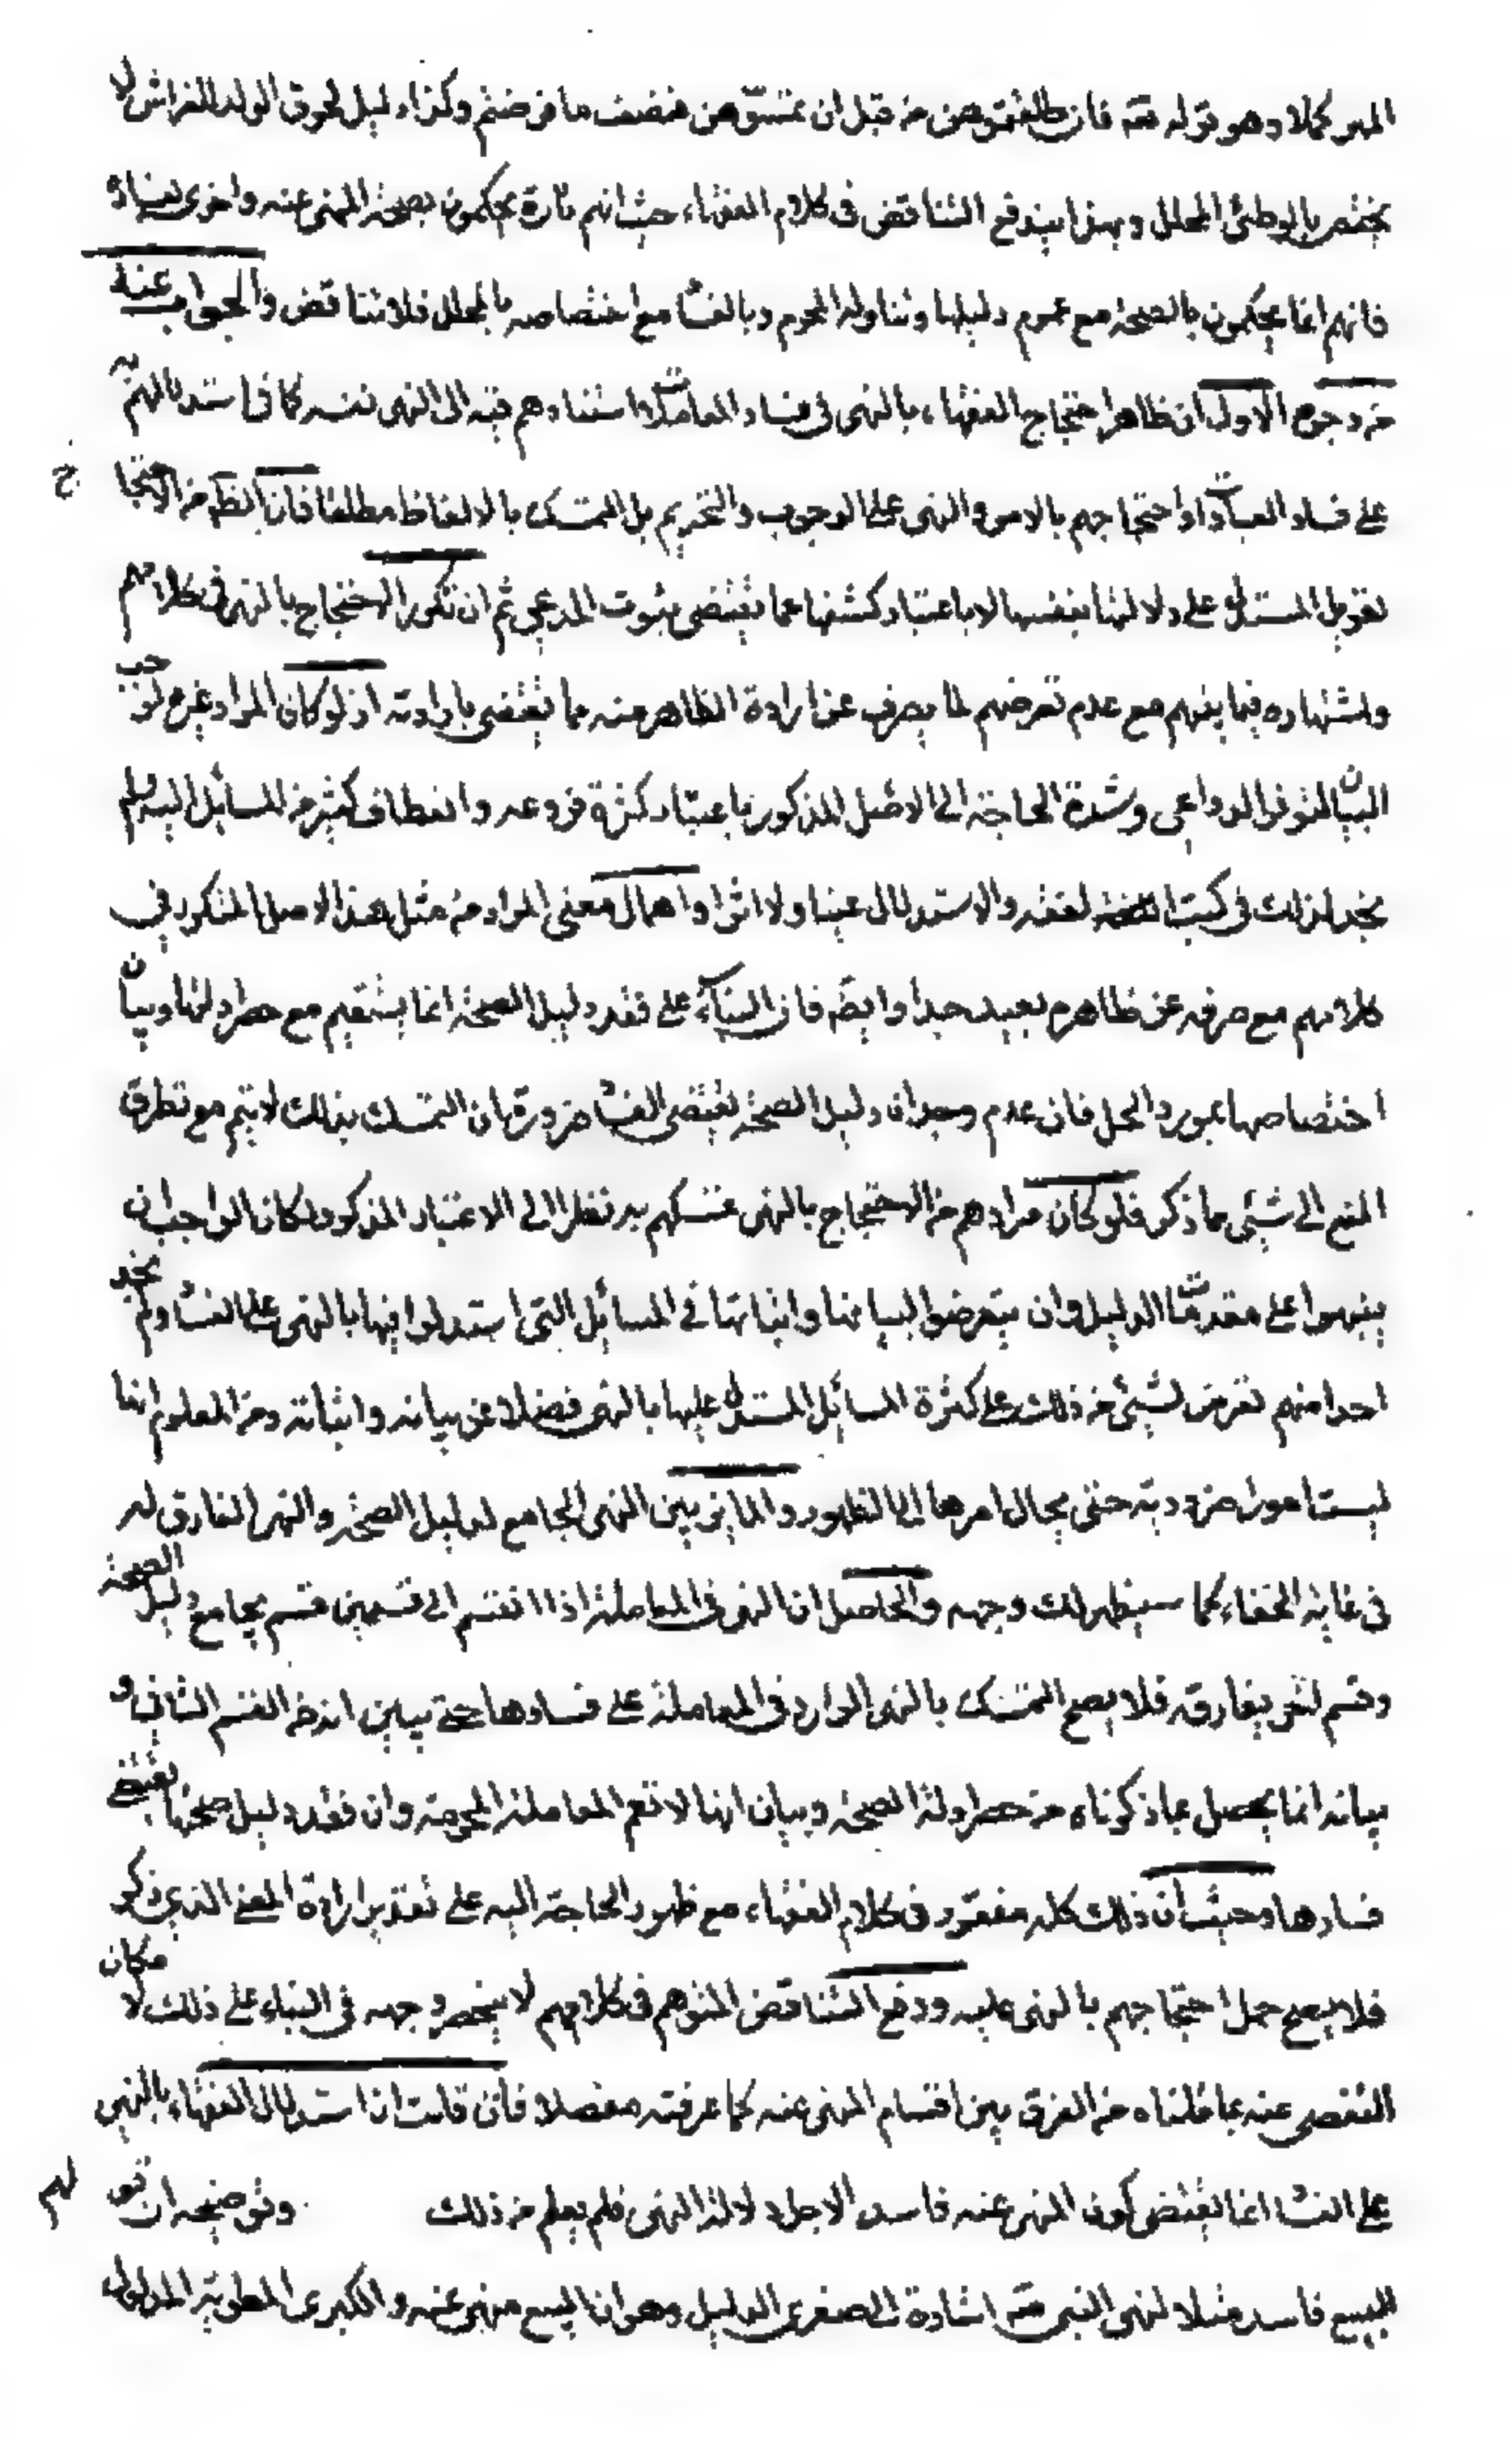 المهر كملا وهو قوله تع فان طلقتموهن من قبل ان تمسوهن فنصف ما فرضتم وكذا دليل لحوق الولد للفراش لا
يختص بالوطئ المحلل وبهذا يندفع التناقض في كلام الفقهاء حيث انهم تارة يحكمون بصحة المنهى عنه واخرى بفساده
فانهم انما يحكمون بالصحة مع عموم دليلها وتناوله المحرم وبالفسا مع اختصاصه بالمحلل فلا تناقض والجواب عنه
من وجوه الاول ان ظاهر احتجاج الفقهاء بالنهى في فساد المعاملات واستنادهم فيه الى النهى نفسه كما في استدلالهم به
على فساد العبادات او احتجاجهم بالامر والنهى على الوجوب والتحريم بل التمسك بالالفاظ مطلقا فان الظ من الاحتجا ج
تعويل المستدل على دلالتها بنفسها لا باعتبار كشفها عما يقتضى ثبوت المدعى ثم ان تكرر الاحتجاج بالنهى في كلامهم
واشتهاره فيما بينهم مع عدم تعرضهم لما يصرف عن ارادة الظاهر منه مما يقتضى بارادته اذ لو كان المراد غيره لوجب
البيان لتوفر الدواعى وشدة الحاجة الى الاصل المذكور باعتبار كثرة فروعه وانعطاف كثير من المسائل اليه ولم
نجد لذلك في كتب الفقه والاستدلال عينا ولا اثرا واهمال معنى المراد من مثل هذا الاصل المتكور في
كلامهم مع صرفه عن ظاهره بعيد جدا وايض فان البناء على فقد دليل الصحة انما يستقيم مع حصر ادلتها وبيان
اختصاصها بمورد الحل فان عدم وجدان دليل الصحة يقتضى الفسا ضرورة ان التمسك بذلك لا يتم مع تطرق
المنع الى شيئ مما ذكر فلو كان مرادهم من الاحتجاج بالنهى تمسكهم به نظرا الى الاعتبار المذكور لكان الواجب ان
ينبهوا على مقدمات الدليل وان يتعرضوا لبيانها واثباتها في المسائل التى استدلوا فيها بالنهى على الفسا ولم نجد
احدا منهم تعرض لشيئ من ذلك على كثرة المسائل المستدل عليها بالنهى فضلا عن بيانه واثباته ومن المعلوم انها
ليست امورا ضرورية حتى يحال امرها الى الظهور والمايز بين النهى الجامع لدليل الصحة والنهى الفارق له
في غاية الخفاء كما سيظهر لك وجهه والحاصل ان النهى في المعاملة اذا انقسم الى قسمين قسم يجامع دليل الصحة
وقسم لنفى يفارقه فلا يصح التمسك بالنهى الوارد في المعاملة على فسادها حتى يبين انه من القسم الثانى و
بيانه انما يحصل بما ذكرناه من حصر ادلة الصحة وبيان انها لا تعم المعاملة المحرمة وان فقد دليل صحتها يقتضى
فسادها وحيث ان ذلك كله مفقود في كلام الفقهاء مع ظهور الحاجة اليه على تقدير ارادة المعنى الذى ذكر
فلا يصح حمل احتجاجهم بالنهى عليه ودفع التناقض المتوهم في كلامهم لا ينحصر وجهه في البناء على ذلك لامكان
التفصى عنه بما قلناه من الفرق بين اقسام المنهى عنه كما عرفته مفصلا فان قلت ان استدلال الفقهاء بالنهى
على الفسا انما يقتضى كون المنهى عنه فاسدا لاجل دلالة النهى فلم يعلم من ذلك وتوضيحه ان قولهم
البيع فاسد مثلا لنهى النبى ص اشارة الى صغرى الدليل وهو ان البيع منهى عنه والكبرى المطوية المدلول